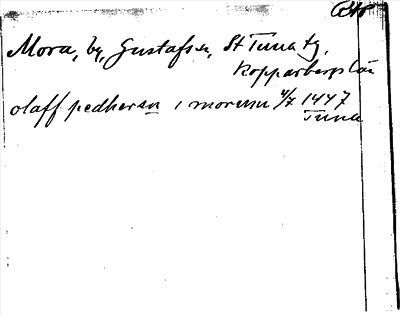 Mora, by, Gustafs sn, St Tuna tg,
Kopparbergs län
olaff pedherson i morum 4/7 1447
Tuna